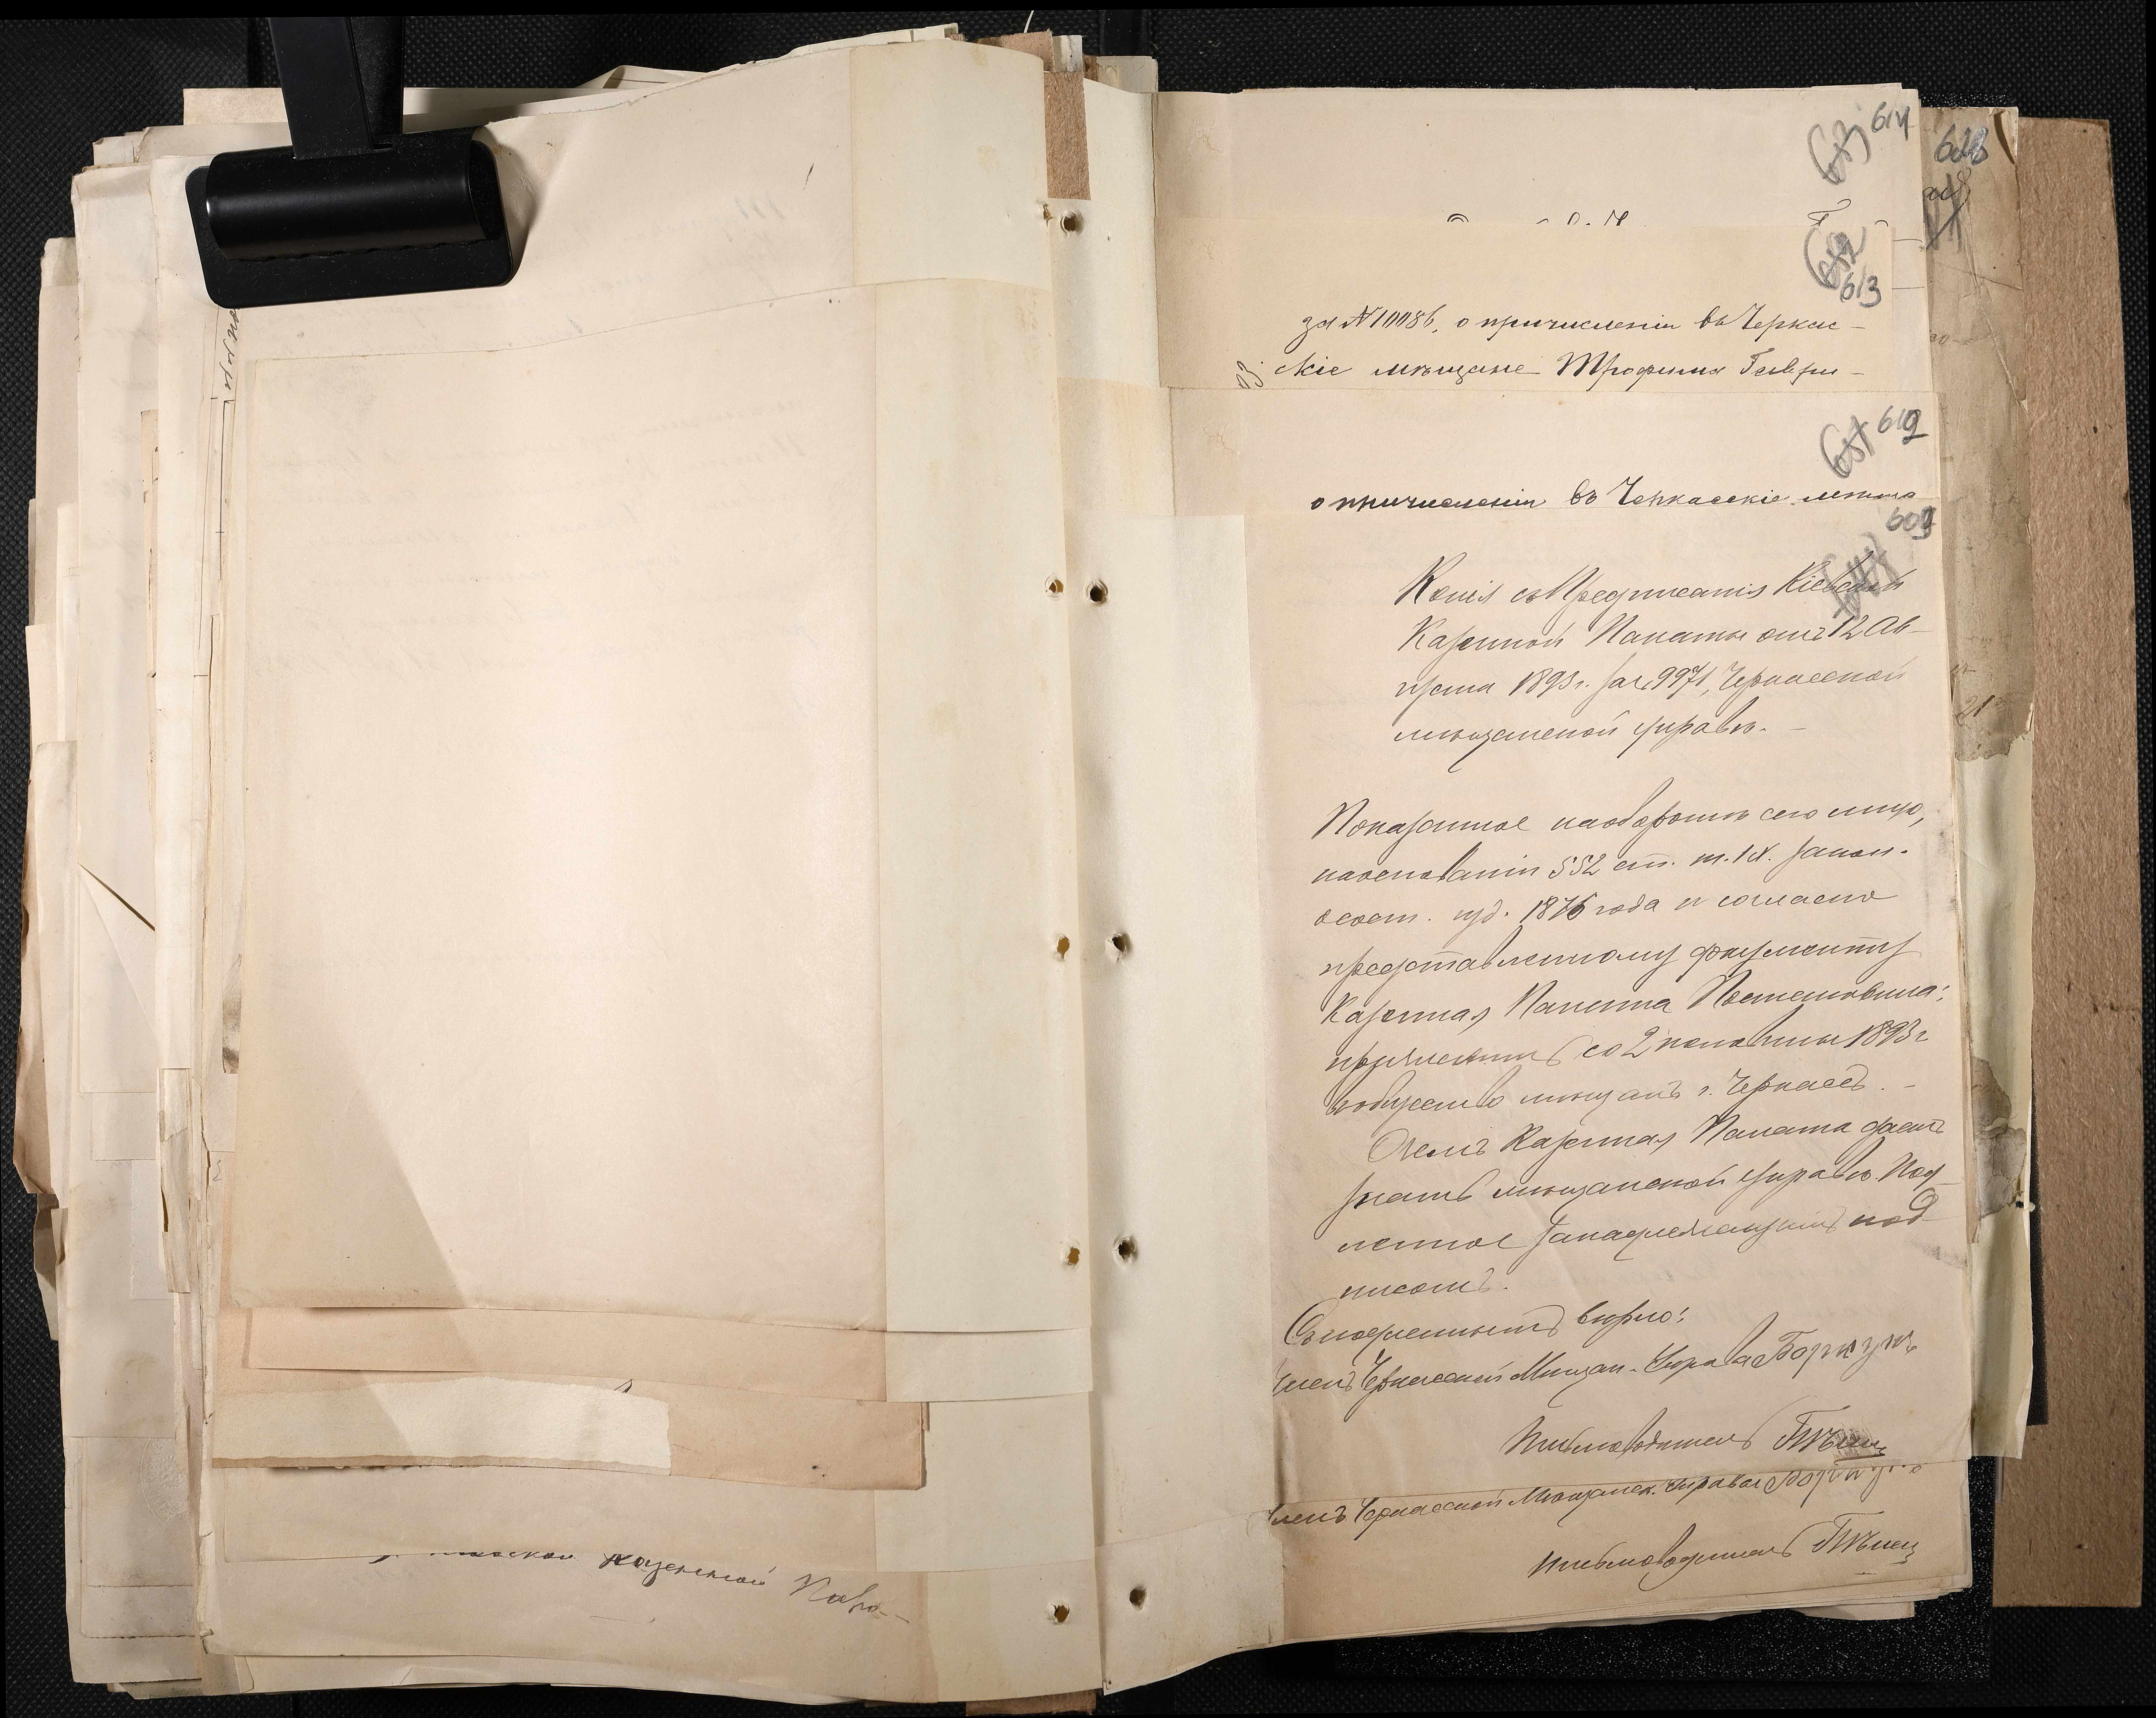 614
613
за № 10086, о причисленіи въ Черкас-
скіе мѣщане Трофима Гаври-
612
о причисленіи въ Черкасскіе мѣща
609
Копія съ Предписанія Кіевской
Казенной Палаты отъ 12 Ав-
густа 1893 г. за № 9971, Черкасской
мѣщанской управѣ. -
Показанное наоборотѣ сего лицо,
наоснованіи 552 ст. т. IX. закон.
о сост. изд. 1876 года и согласно
представленному документу
Казенная Палата Постановила:
причислить со 2 половины 1893 г
вобщество мѣщанъ г. Черкасъ. -
О чемъ Казенная Палата даетъ
знать мѣщанской управѣ. Под-
ленное за надлежащимъ под-
писомъ.
Съ подленнымъ вѣрно:
Членъ Черкасской Мѣщан. Управы
Письмоводитель
Членъ Черкасской Мѣщанск. Управы
Письмоводитель
Казенной Пала-